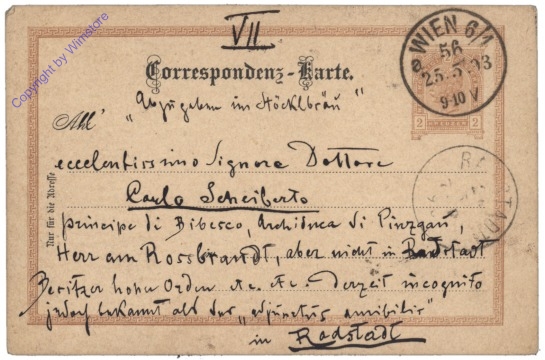 VII
WIEN 6/1
56
25.5.93
9-10 V
Correspondenz-Karte.
„Abzugeben im Höcklbräu"
2 2
All'
eccelentissimo Signore Dottore
Paulo Scheiberto
principe di Bibesco, Archiduca di Pinzgau,
Herr am Rossbrandt, aber nicht in Radstadt
Besitzer hoher Orden etc. etc. Derzeit incognito
jedoch bekannt als der „adjunctus amibilis"
in Radstadt
Nur für die Adresse
Copyright by Winstore